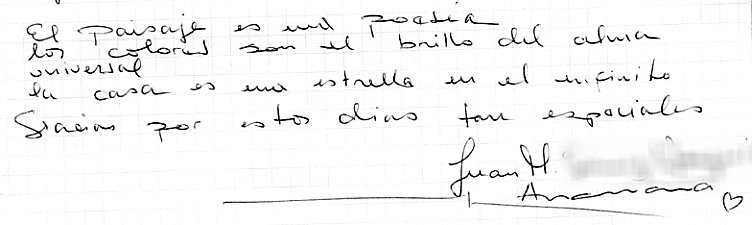 El paisaje es una poesia
los colores son el brillo del alma
universal
la casa es una estrella en el infinito
Gracias por estos dias tan especiales
Juan M.